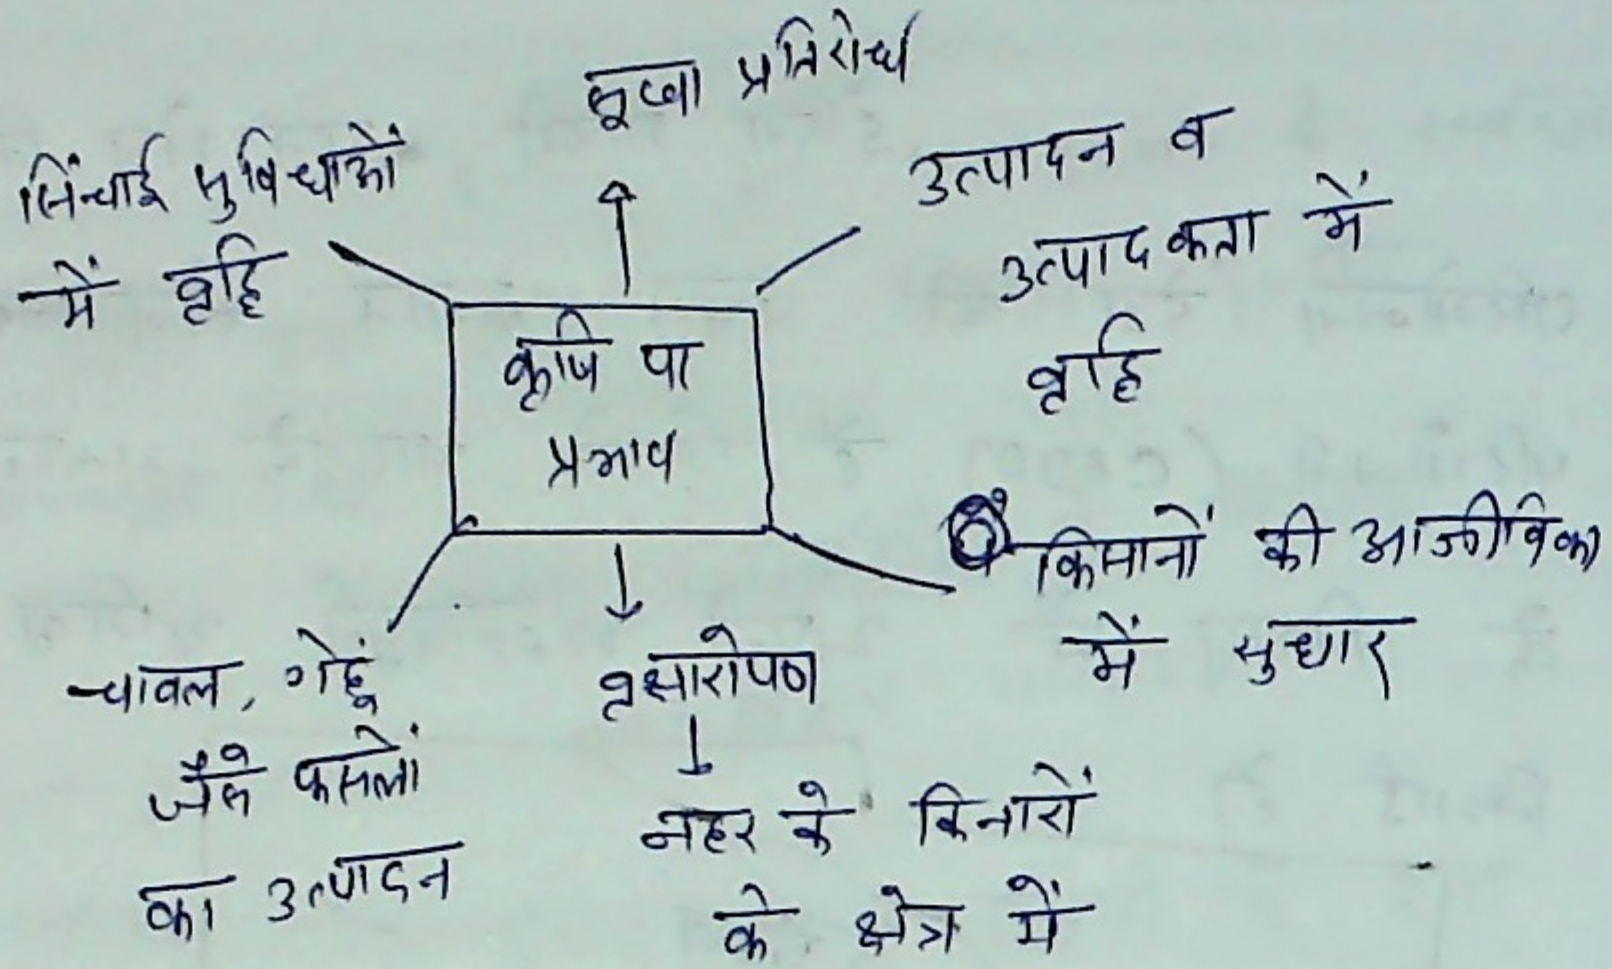 सूखा प्रतिरोध
सिंचाई सुविधाओं
में वृद्धि
उत्पादन व
उत्पादकता में
वृद्धि
कृषि पर
प्रभाव
किसानों की आजीविका
में सुधार
चावल, गेहूं
जैसे फसलों
का उत्पादन
वृक्षारोपण
नहर के किनारों
के क्षेत्र में